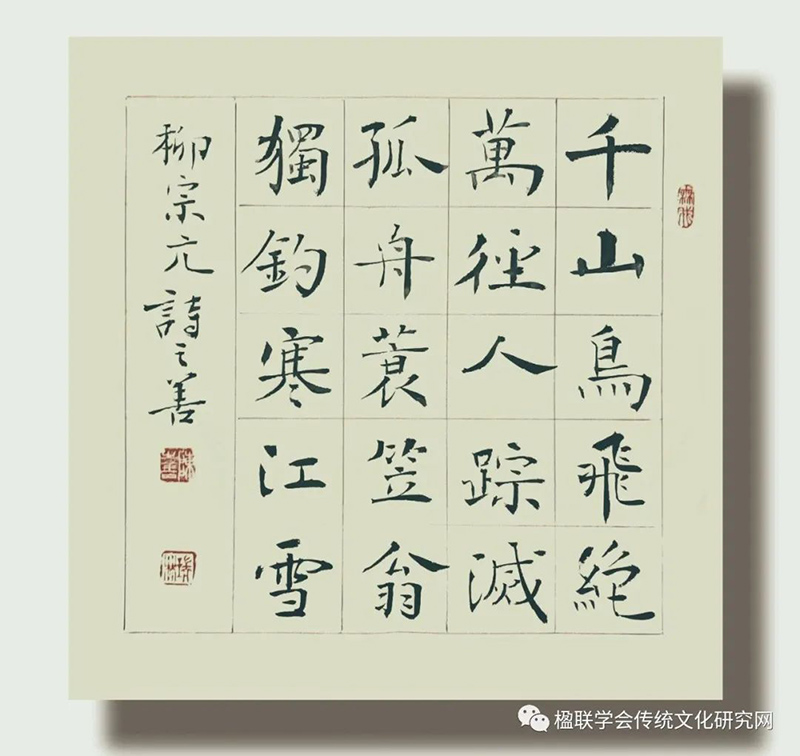 千山鳥飛絶
萬徑人踪滅
孤舟蓑笠翁
獨釣寒江雪
柳宗元詩之善
楹联学会传统文化研究网